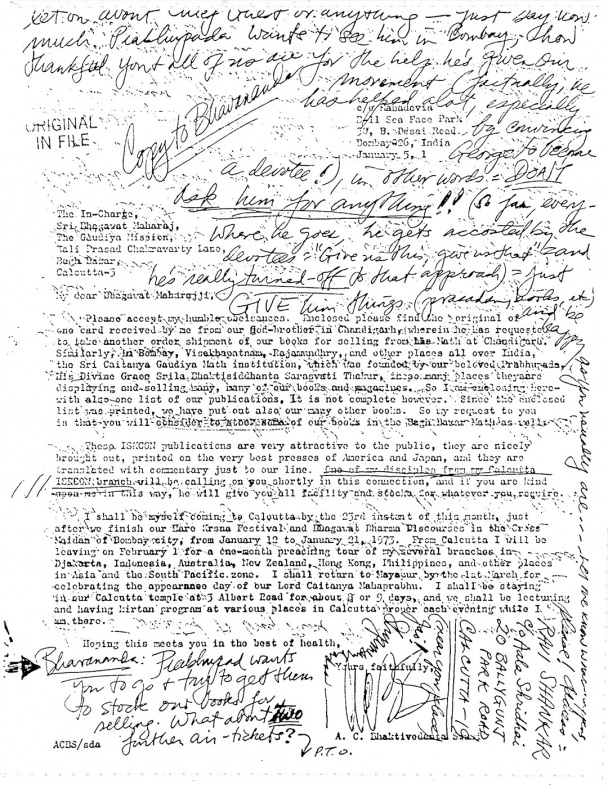 let on about
or anything — just say how
much Prabhupada wants to see him in Bombay, & how
thankful you & all of us are for the help he's given our
movement (factually, he
has helped alot, especially
by convincing
George to become
a devotee!), in other words = DON'T
ask him for anything!! (so far every-
where he goes, he gets accosted by the
devotees = "Give us this, give us that" and
he's really turned-off to that approach) = just
GIVE him things (prasadam, books, etc)
and be
happy as you usually are...
ORIGINAL
IN FILE
Copy to Bhavananda
c/o Ramadevia
Sea Face Park
B. Desai Road
Bombay-26, India
January 5,
The In-Charge,
Sri Bhagawat Maharaj,
The Gaudiya Mission,
Kali Prasad Chakravarty Lane,
Bagh Bazar,
Calcutta-3
My dear Bhagawat Maharajji,
Please accept my humble obeisances. Enclosed please find the original of
one card received by me from our god-brother in Chandigarh, wherein he has requested
to take another order shipment of our books for selling from the Math at Chandigarh.
Similarly, in Bombay, Visakhapatnam, Rajamundhry, and other places all over India,
the Sri Caitanya Gaudiya Math institution, which was founded by our beloved Prabhupada,
His Divine Grace Srila Bhaktisiddhanta Sarasvati Thakur, in so many places they are
displaying and selling many, many of our books and magazines. So I am enclosing here-
with also one list of our publications, it is not complete however. Since the enclosed
list was printed, we have put out also our many other books. So my request to you
is that you will consider to stock some of our books in the Bagh Bazar Math as well.
These ISKCON publications are very attractive to the public, they are nicely
brought out, printed on the very best presses of America and Japan, and they are
translated with commentary just to our line. One of my disciples from my Calcutta
ISKCON branch will be calling on you shortly in this connection, and if you are kind
upon us in this way, he will give you all facility and stocks for whatever you require.
I shall be myself coming to Calcutta by the 23rd instant of this month, just
after we finish our Hare Krsna Festival and Bhagavat Dharma Discourses in the Cross
Maidan of Bombay city, from January 12 to January 21, 1973. From Calcutta I will be
leaving on February 1 for a one-month preaching tour of my several branches in
Djakarta, Indonesia, Australia, New Zealand, Hong Kong, Philippines, and other places
in Asia and the South Pacific zone. I shall return to Mayapur by the 1st March for
celebrating the appearance day of our Lord Caitanya Mahaprabhu. I shall be staying
in our Calcutta temple at 3 Albert Road for about 8 or 9 days, and we shall be lecturing
and having kirtan program at various places in Calcutta proper each evening while I
am there.
Hoping this meets you in the best of health,
Yours faithfully,
A. C. Bhaktivedanta Swami
ACBS/sda
Bhavananda: Prabhupad wants
you to go & try to get them
to stock our books for
selling. What about two
further air-tickets?
→ P.T.O.
Address =
RAVI SHANKAR
c/o
20 BALLYGUNJ
PARK ROAD
CALCUTTA-19